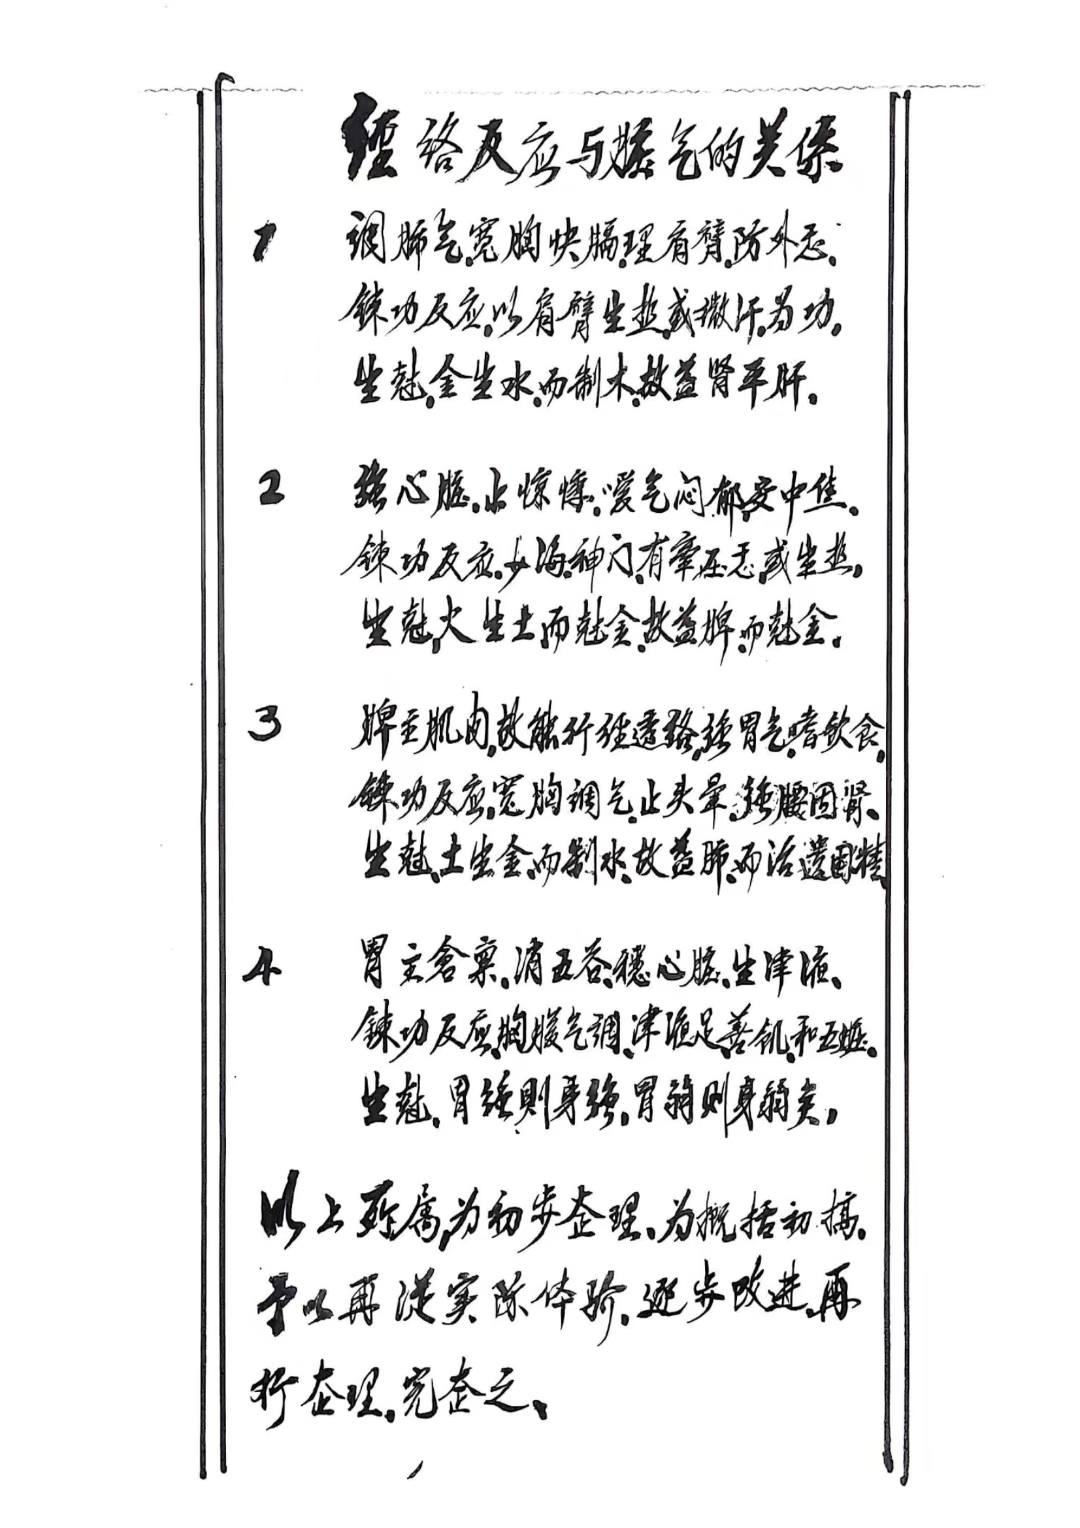 经络反应与脏气的关系
1 调肺气,宽胸快膈.理肩臂.防外恶.
鍊功反应,以肩臂生热,或撤汗,为功.
生尅,金生水,而制木,故益肾平肝.
2 强心脏,止惊悸.嗳气闷郁,安中焦.
鍊功反应,少海神门,有牵压恶,或生热,
生尅,火生土,而尅金,故益脾,而尅金.
3 脾主肌肉,故能行经透络,强胃气,嗜饮食,
鍊功反应,宽胸调气,止头晕,强腰固肾、
生尅,土生金,而制水,故益肺,而治遗固精
4 胃主倉禀,消五谷,穩心脏,生津液、
鍊功反应,胸暖气调,津液足,善饥,和五脏.
生尅,胃强則身強,胃弱则身弱矣,
以上所属,为初步整理、为概括初搞.
予以再從实际体驗,逐步改进,再
行整理,完整之、